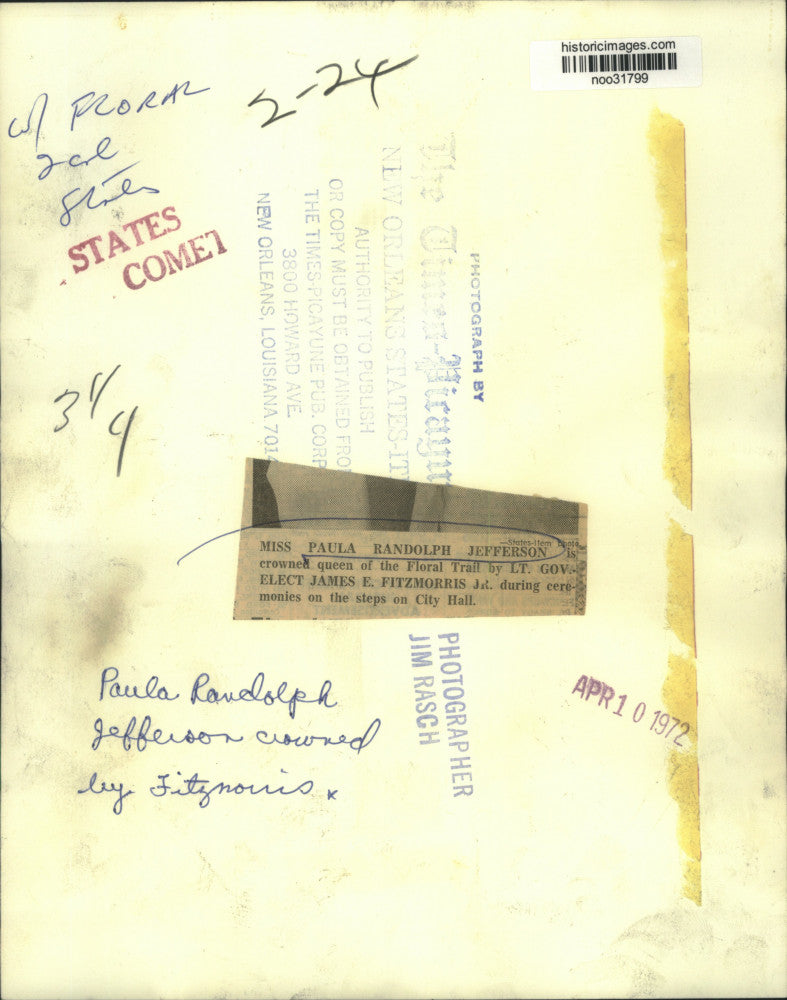 historicimages.com
noo31799
w/ FLORAL
2-24
2 col
States
STATES
COMET
3 1/4
PHOTOGRAPH BY
The Times-Picayune
NEW ORLEANS STATES-IT
AUTHORITY TO PUBLISH
OR COPY MUST BE OBTAINED FRO
THE TIMES-PICAYUNE PUB. CORP
3800 HOWARD AVE.
NEW ORLEANS, LOUISIANA 7014
—States-Item photo
MISS PAULA RANDOLPH JEFFERSON is
crowned queen of the Floral Trail by LT. GOV.-
ELECT JAMES E. FITZMORRIS JR. during cere-
monies on the steps on City Hall.
PHOTOGRAPHER
JIM RASCH
APR 10 1972
Paula Randolph
Jefferson crowned
by Fitzmorris x